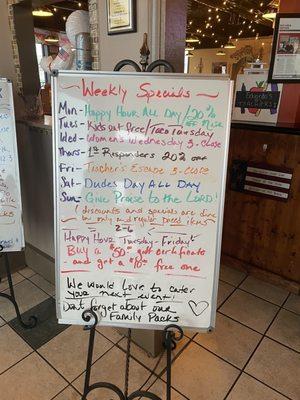 Weekly Specials
Mon- Happy Hour All Day
Tues- Kids Eat Free/Taco Tuesday
Wed- Women's Wednesday 3-Close
Thurs- 1st Responders 20% off
Fri- Teacher's Escape 3-Close
Sat- Dudes Day ALL DAY
Sun- Give Praise to the LORD!
(discounts and specials are dine
in only and regular priced items)
2-6
Happy Hour Tuesday-Friday!
Buy a $50 gift certificate
and get a $10 free one
We would love to cater
your next event!
Don't forget about our
Family Packs